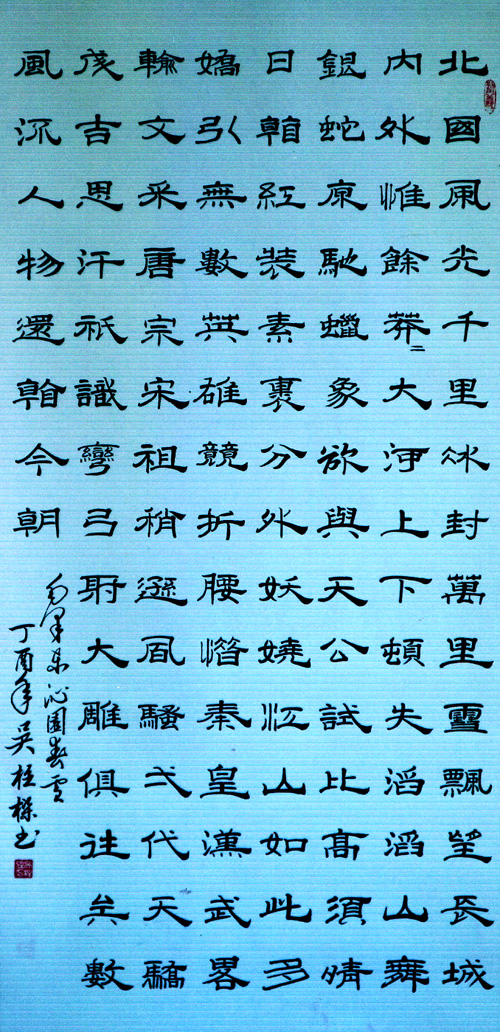 北國風光千里冰封萬里雪飄望長城
內外惟餘莽〻大河上下頓失滔滔山舞
銀蛇原馳蠟象欲與天公試比高須晴
日看紅裝素裹分外妖嬈江山如此多
嬌引無數英雄競折腰惜秦皇漢武畧
輸文采唐宗宋祖稍遜風騷弌代天驕
成吉思汗祇識彎弓射大雕俱往矣數
風流人物還看今朝
毛澤東沁園春雪
丁酉年吳書